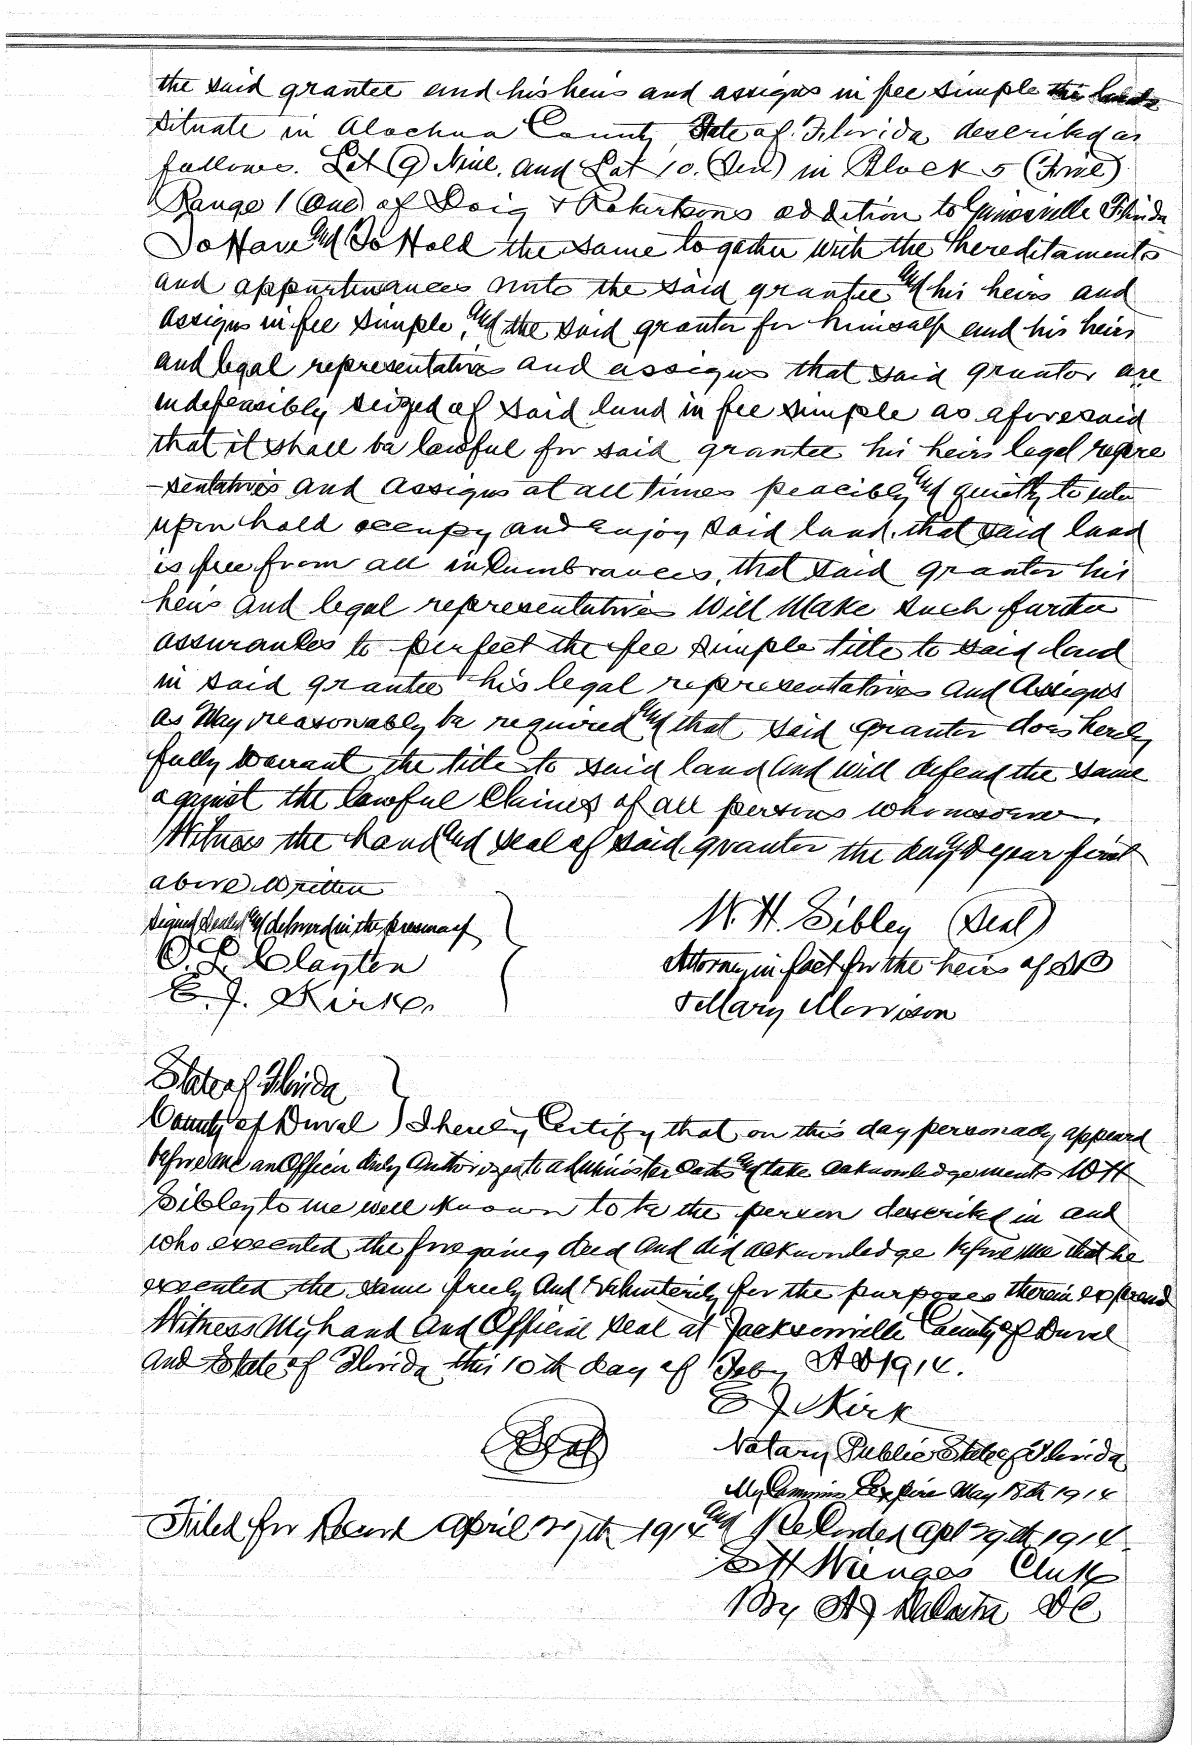 the said grantee and his heirs and assigns in fee simple the lands
situate in Alachua County, State of Florida, described as
follows. Lot (9) Nine, and Lot 10. (Ten) in Block 5 (Five)
Range 1 (One) of Doig & Robertsons addition to Gainesville Florida
To Have and To Hold the same together with the hereditaments
and appurtenances unto the said grantee and his heirs and
assigns in fee simple, and the said grantor for himself and his heirs
and legal representatives and assigns that said grantor are
indefeasibly seized of said land in fee simple as aforesaid
that it shall be lawful for said grantee his heirs legal repre
-sentatives and assigns at all times peacibly and quietly to enter
upon hold occupy and enjoy said land, that said land
is free from all incumbrances, that said grantor his
heirs and legal representatives will make such further
assurances to perfect the fee simple title to said land
in said grantee his legal representatives and assigns
as may reasonably be required and that said grantor does hereby
fully warrant the title to said land and will defend the same
against the lawful claims of all persons whomsoever.
Witness the hand and seal of said grantor the day & year first
above written
Signed Sealed and delivered in the presence of
O. L. Clayton
E. J. Kirk.
W. H. Sibley (Seal)
Attorney in fact for the heirs of
& Mary Morrison
State of Florida
County of Duval } I hereby Certify that on this day personally appeared
before me an Officer duly authorized to administer oaths and take acknowledgements W H
Sibley to me well known to be the person described in and
who executed the foregoing deed and did acknowledge before me that he
executed the same freely and volunterily for the purposes therein expressed
Witness My hand and Official seal at Jacksonville County of Duval
and State of Florida this 10th day of Feby A D 1914.
E J Kirk
Seal
Notary Public State of Florida
My Commis Expire May 18th 1914
Filed for Record April 27th 1914 and Recorded Apl 29th 1914.
S H Wienges Clerk
By DC